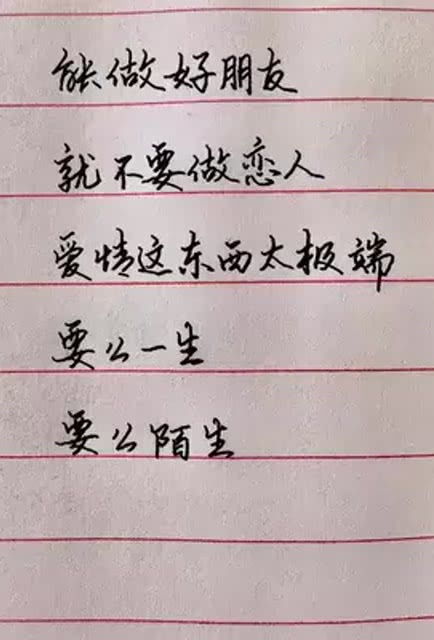 能做好朋友
就不要做恋人
爱情这东西太极端
要么一生
要么陌生